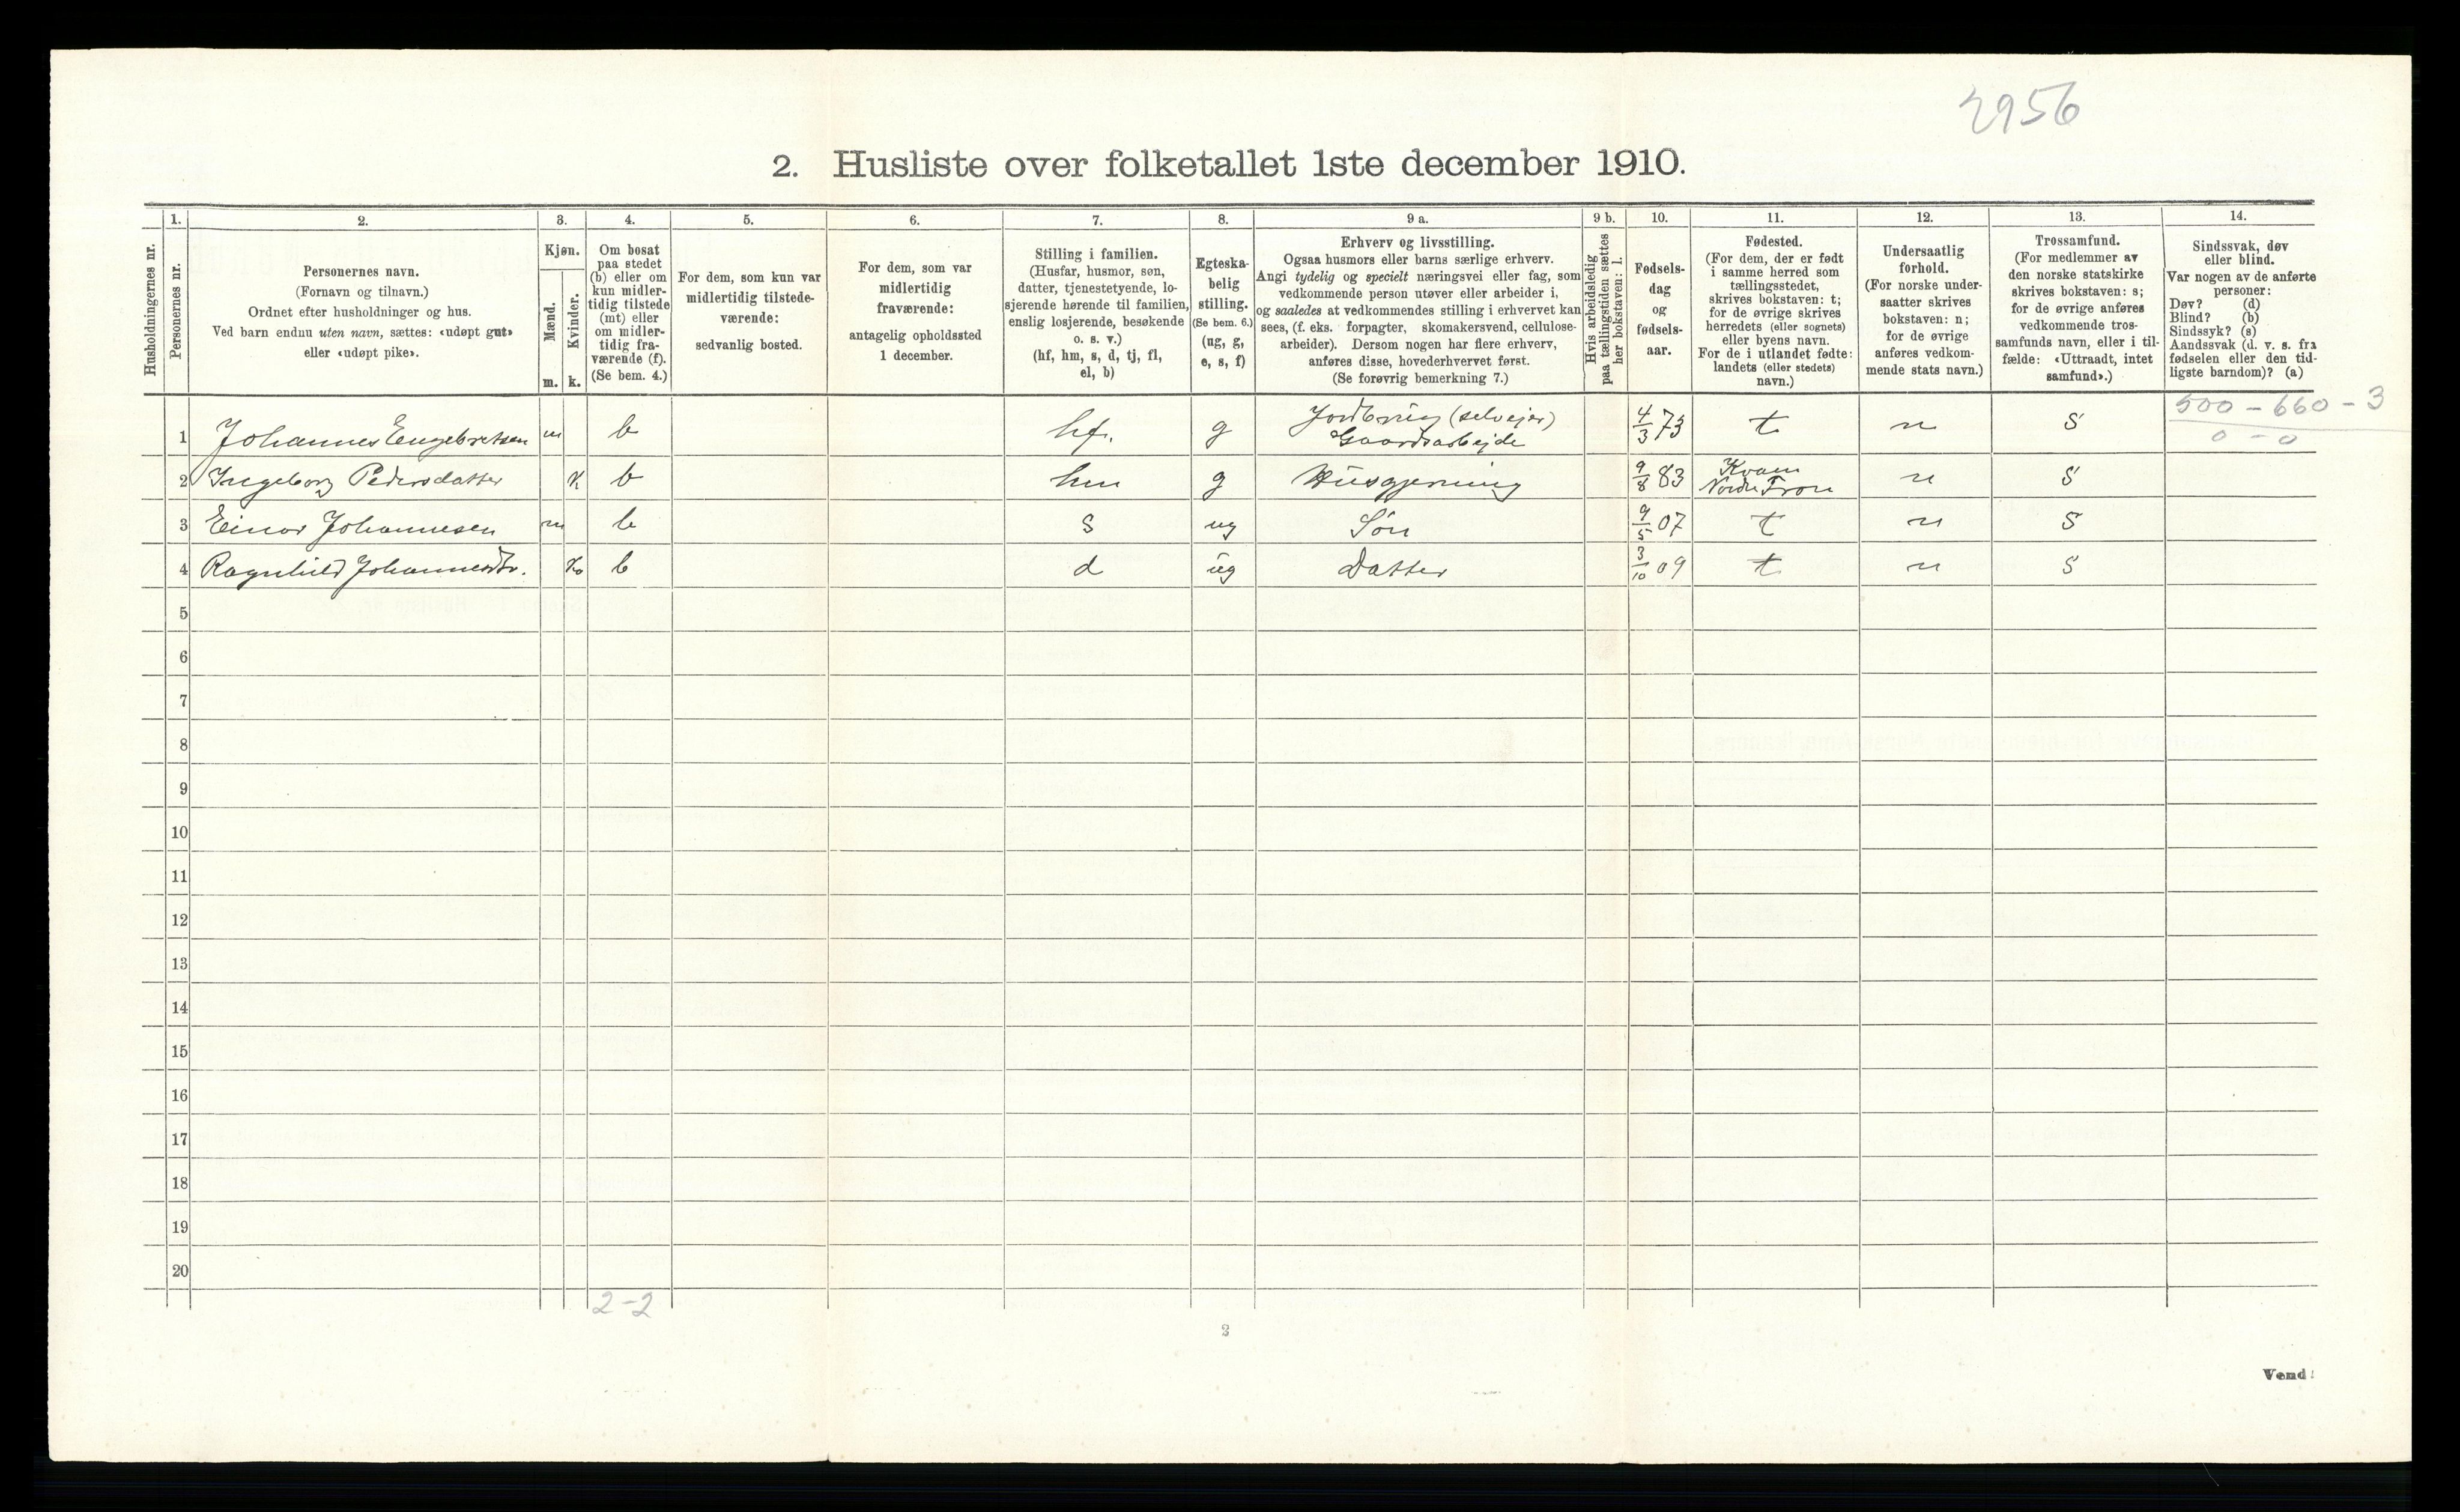 2956
2. Husliste over folketallet 1ste december 1910.
Husholdningernes nr.
1.
Personernes nr.
2.
Personernes navn.
(Fornavn og tilnavn.)
Ordnet efter husholdninger og hus.
Ved barn endnu uten navn, sættes: «udøpt gut»
eller «udøpt pike».
3.
Kjøn.
Mænd.
Kvinder.
m. k.
4.
Om bosat
paa stedet
(b) eller om
kun midler-
tidig tilstede
(mt) eller
om midler-
tidig fra-
værende (f).
(Se bem. 4.)
5.
For dem, som kun var
midlertidig tilstede-
værende:
sedvanlig bosted.
6.
For dem, som var
midlertidig
fraværende:
antagelig opholdssted
1 december.
7.
Stilling i familien.
(Husfar, husmor, søn,
datter, tjenestetyende, lo-
sjerende hørende til familien,
enslig losjerende, besøkende
o. s. v.)
(hf, hm, s, d, tj, fl,
el, b)
8.
Egteska-
belig
stilling.
(Se bem. 6.)
(ug, g,
e, s, f)
9 a.
Erhverv og livsstilling.
Ogsaa husmors eller barns særlige erhverv.
Angi tydelig og specielt næringsvei eller fag, som
vedkommende person utøver eller arbeider i,
og saaledes at vedkommendes stilling i erhvervet kan
sees, (f. eks. forpagter, skomakersvend, cellulose-
arbeider). Dersom nogen har flere erhverv,
anføres disse, hovederhvervet først.
(Se forøvrig bemerkning 7.)
9 b.
Hvis arbeidsledig
paa tællingstiden sættes
her bokstaven: l.
10.
Fødsels-
dag
og
fødsels-
aar.
11.
Fødested.
(For dem, der er født
i samme herred som
tællingsstedet,
skrives bokstaven: t;
for de øvrige skrives
herredets (eller sognets)
eller byens navn.
For de i utlandet fødte:
landets (eller stedets)
navn.)
12.
Undersaatlig
forhold.
(For norske under-
saatter skrives
bokstaven: n;
for de øvrige
anføres vedkom-
mende stats navn.)
13.
Trossamfund.
(For medlemmer av
den norske statskirke
skrives bokstaven: s;
for de øvrige anføres
vedkommende tros-
samfunds navn, eller i til-
fælde: «Uttraadt, intet
samfund».)
14.
Sindssvak, døv
eller blind.
Var nogen av de anførte
personer:
Døv? (d)
Blind? (b)
Sindssyk? (s)
Aandssvak (d. v. s. fra
fødselen eller den tid-
ligste barndom)? (a)
500 - 660 - 3
0 - 0
1 Johannes Engebretsen m b hf. g Jordbrug (selvejer) Gaardsarbejde 4/3 73 t n S
2 Ingeborg Pedersdatter K b hm g Husgjerning 9/8 83 Kvam Nordre Fron n S
3 Einar Johannesen m b S ug Søn 9/5 07 t n S
4 Ragnhild Johannesdtr. K b d ug Datter 3/10 09 t n S
5
6
7
8
9
10
11
12
13
14
15
16
17
18
19
20
2-2
2
Vend!